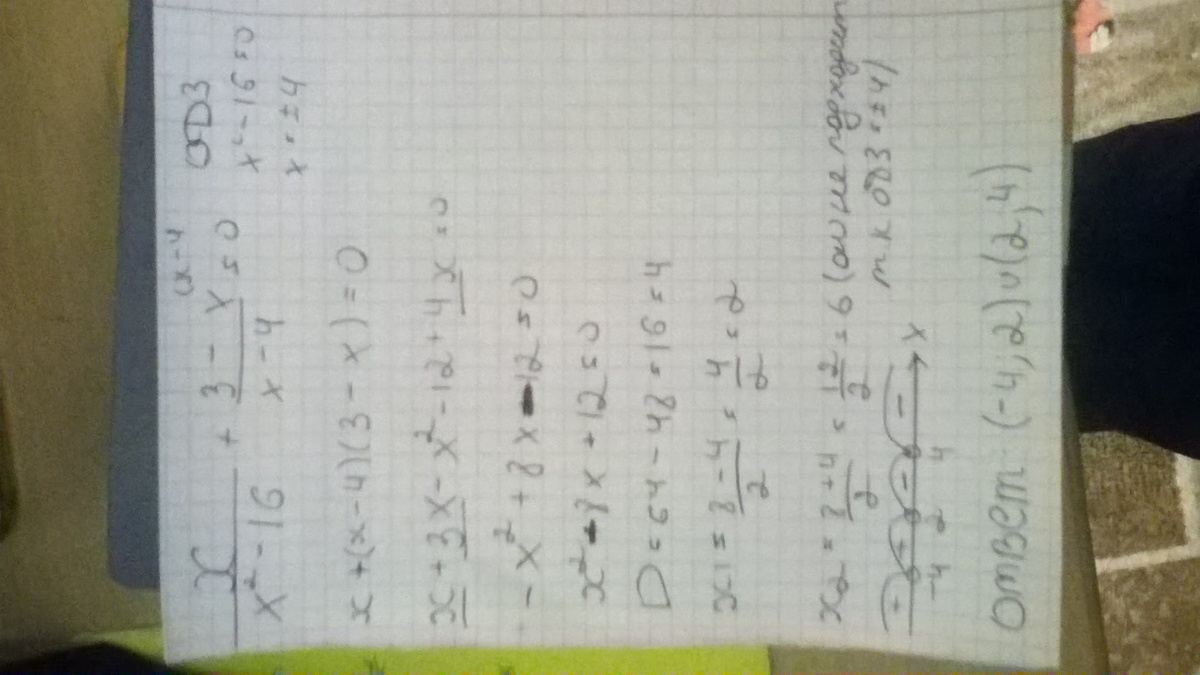 x/(x²-16) + (3-x)/(x-4) = 0 ОДЗ
x²-16=0
x=±4
x+(x-4)(3-x)=0
x+3x-x²-12+4x=0
-x²+8x-12=0
x²-8x+12=0
D=64-48=16=4
x1=(8-4)/2=4/2=2
x2=(8+4)/2=12/2=6 ( не подходит
т к ОДЗ=±4)
-4 2 4 x
Ответ: (-4;2)∪(2;4)